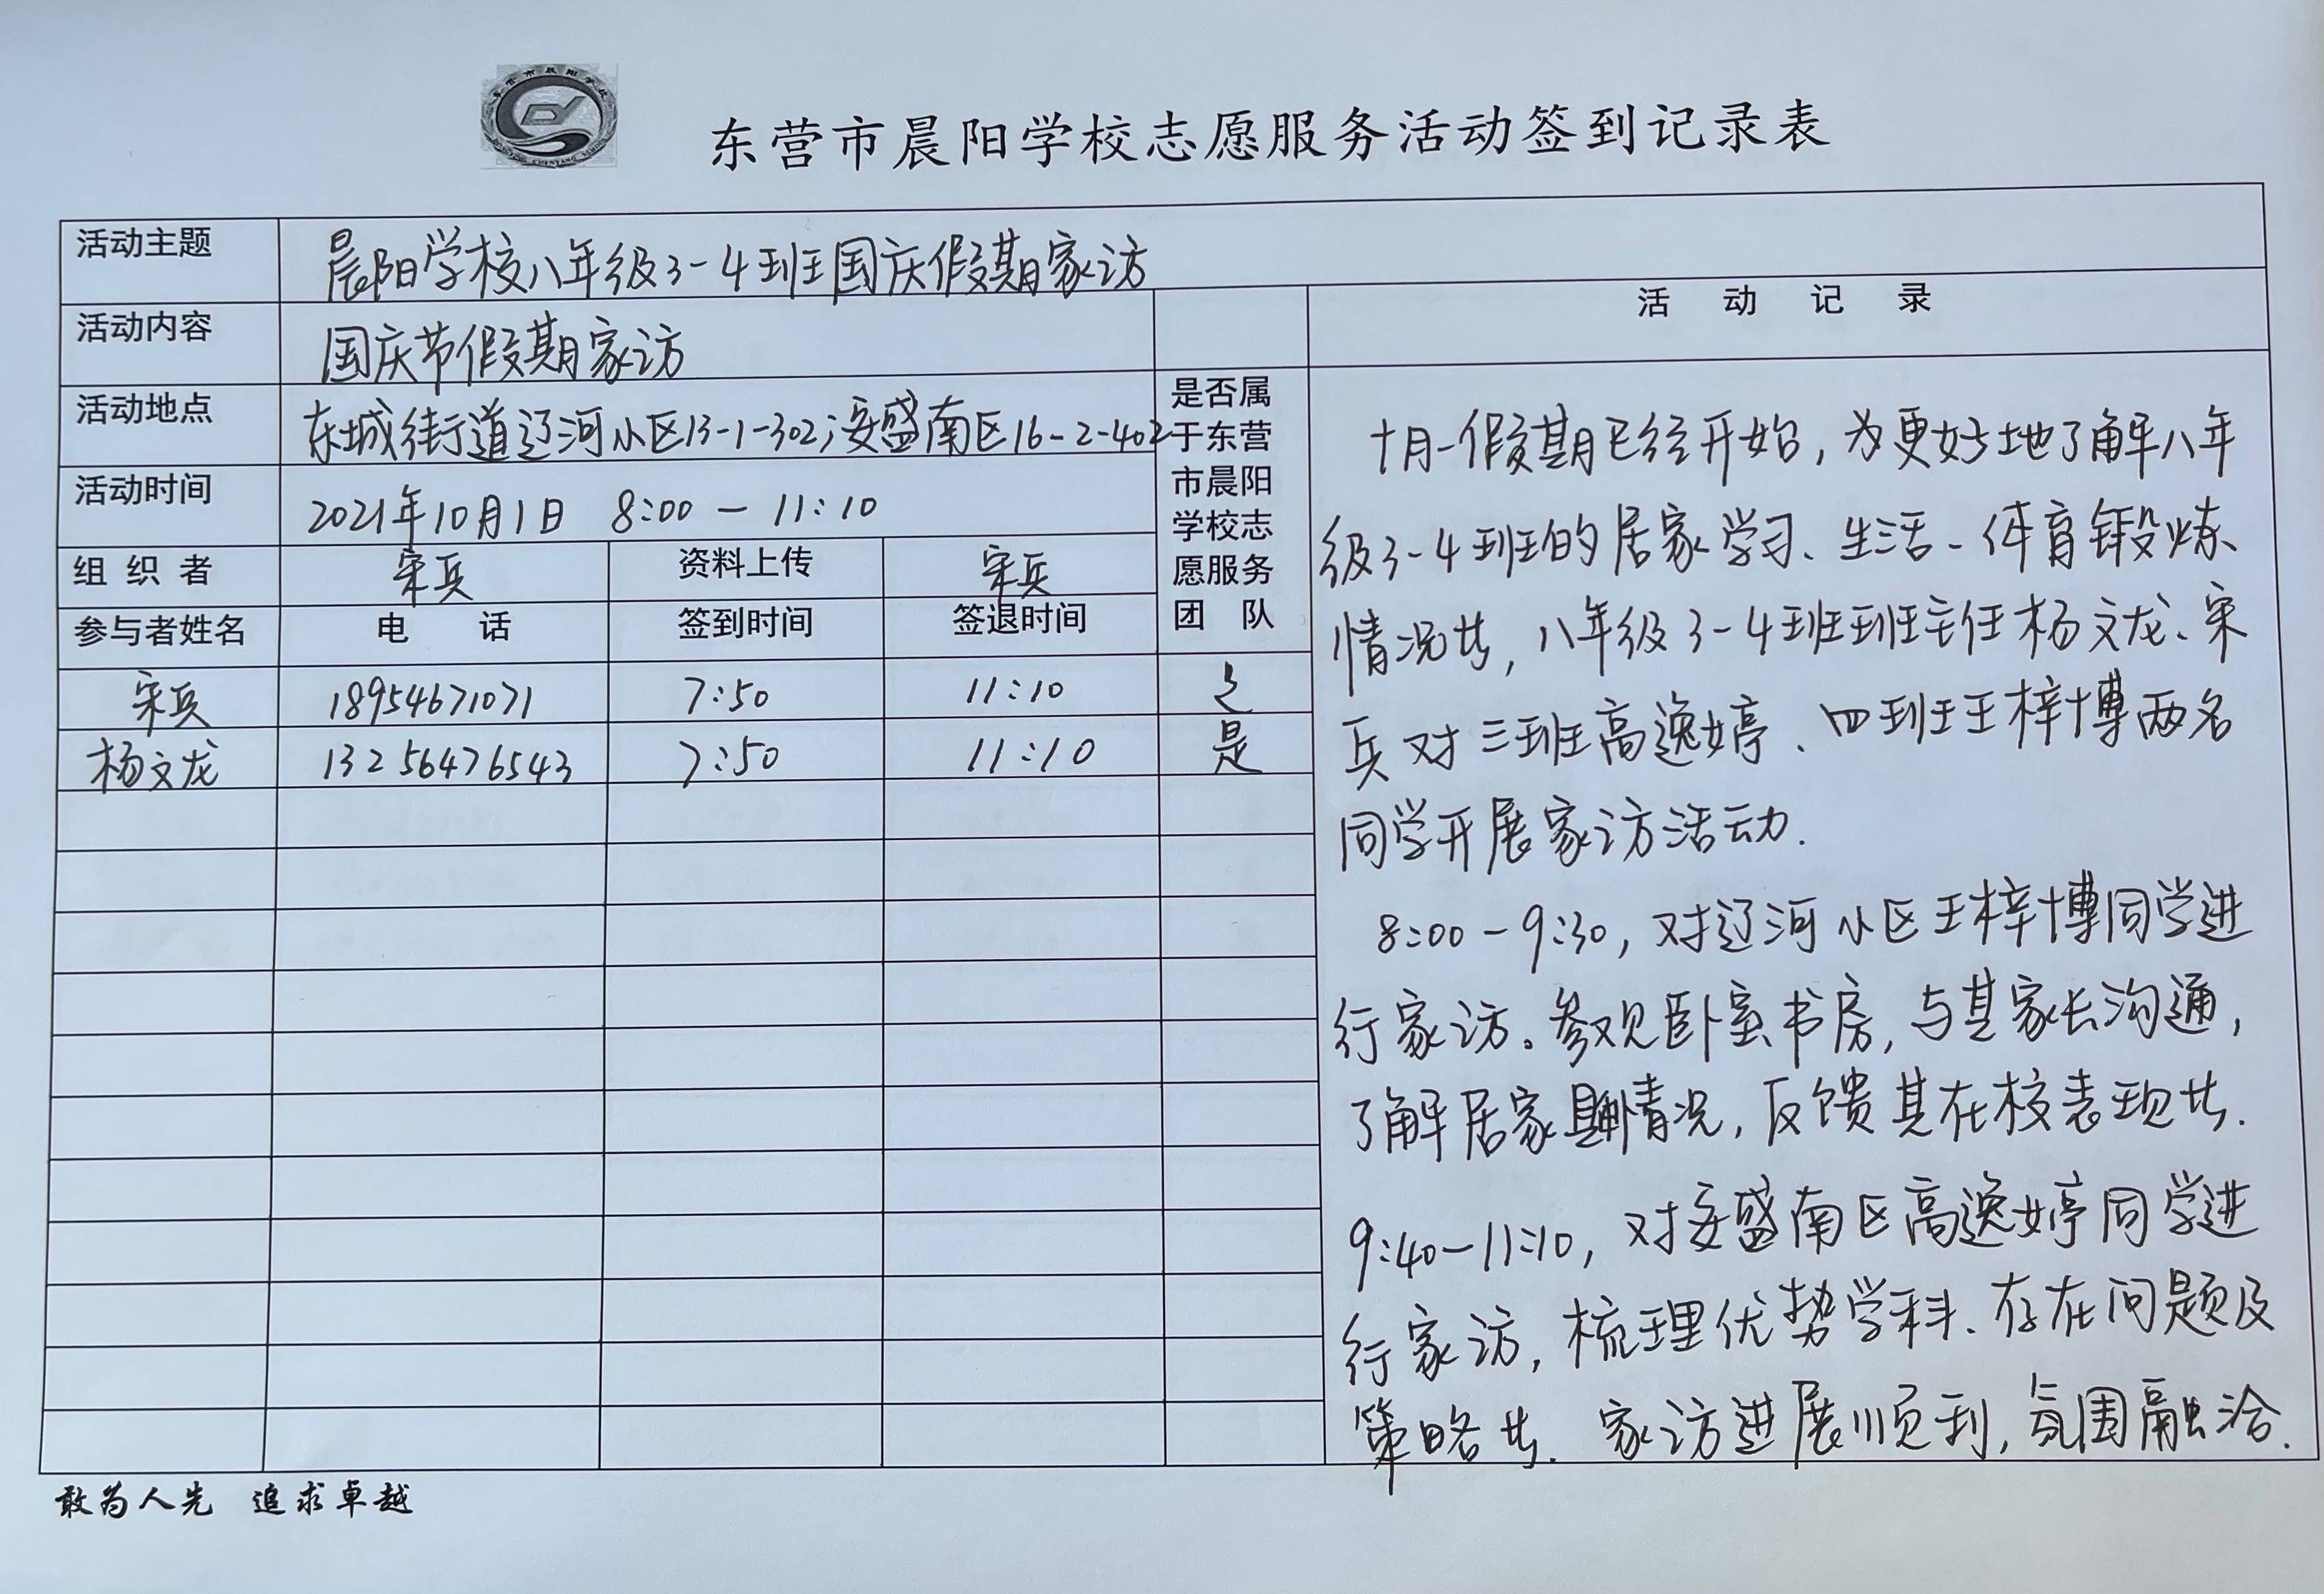 东营市晨阳学校志愿服务活动签到记录表
活动主题 晨阳学校八年级3-4班国庆假期家访
活动内容 国庆节假期家访
活动地点 东城街道辽河小区13-1-302;安盛南区16-2-402
活动时间 2021年10月1日 8:00-11:10
组织者 宋兵 资料上传 宋兵
参与者姓名 电话 签到时间 签退时间
是否属
于东营
市晨阳
学校志
愿服务
团队
宋兵 18954671071 7:50 11:10 是
杨文龙 13256476543 7:50 11:10 是
活动记录
十月一假期已经开始,为更好地了解八年
级3-4班的居家学习、生活、体育锻炼
情况等,八年级3-4班班主任杨文龙、宋
兵对三班高逸婷、四班王梓博两名
同学开展家访活动.
8:00-9:30,对辽河小区王梓博同学进
行家访。参观卧室书房,与其家长沟通,
了解居家情况,反馈其在校表现等.
9:40-11:10,对安盛南区高逸婷同学进
行家访,梳理优势学科、存在问题及
策略等.家访进展顺利,氛围融洽.
敢为人先 追求卓越